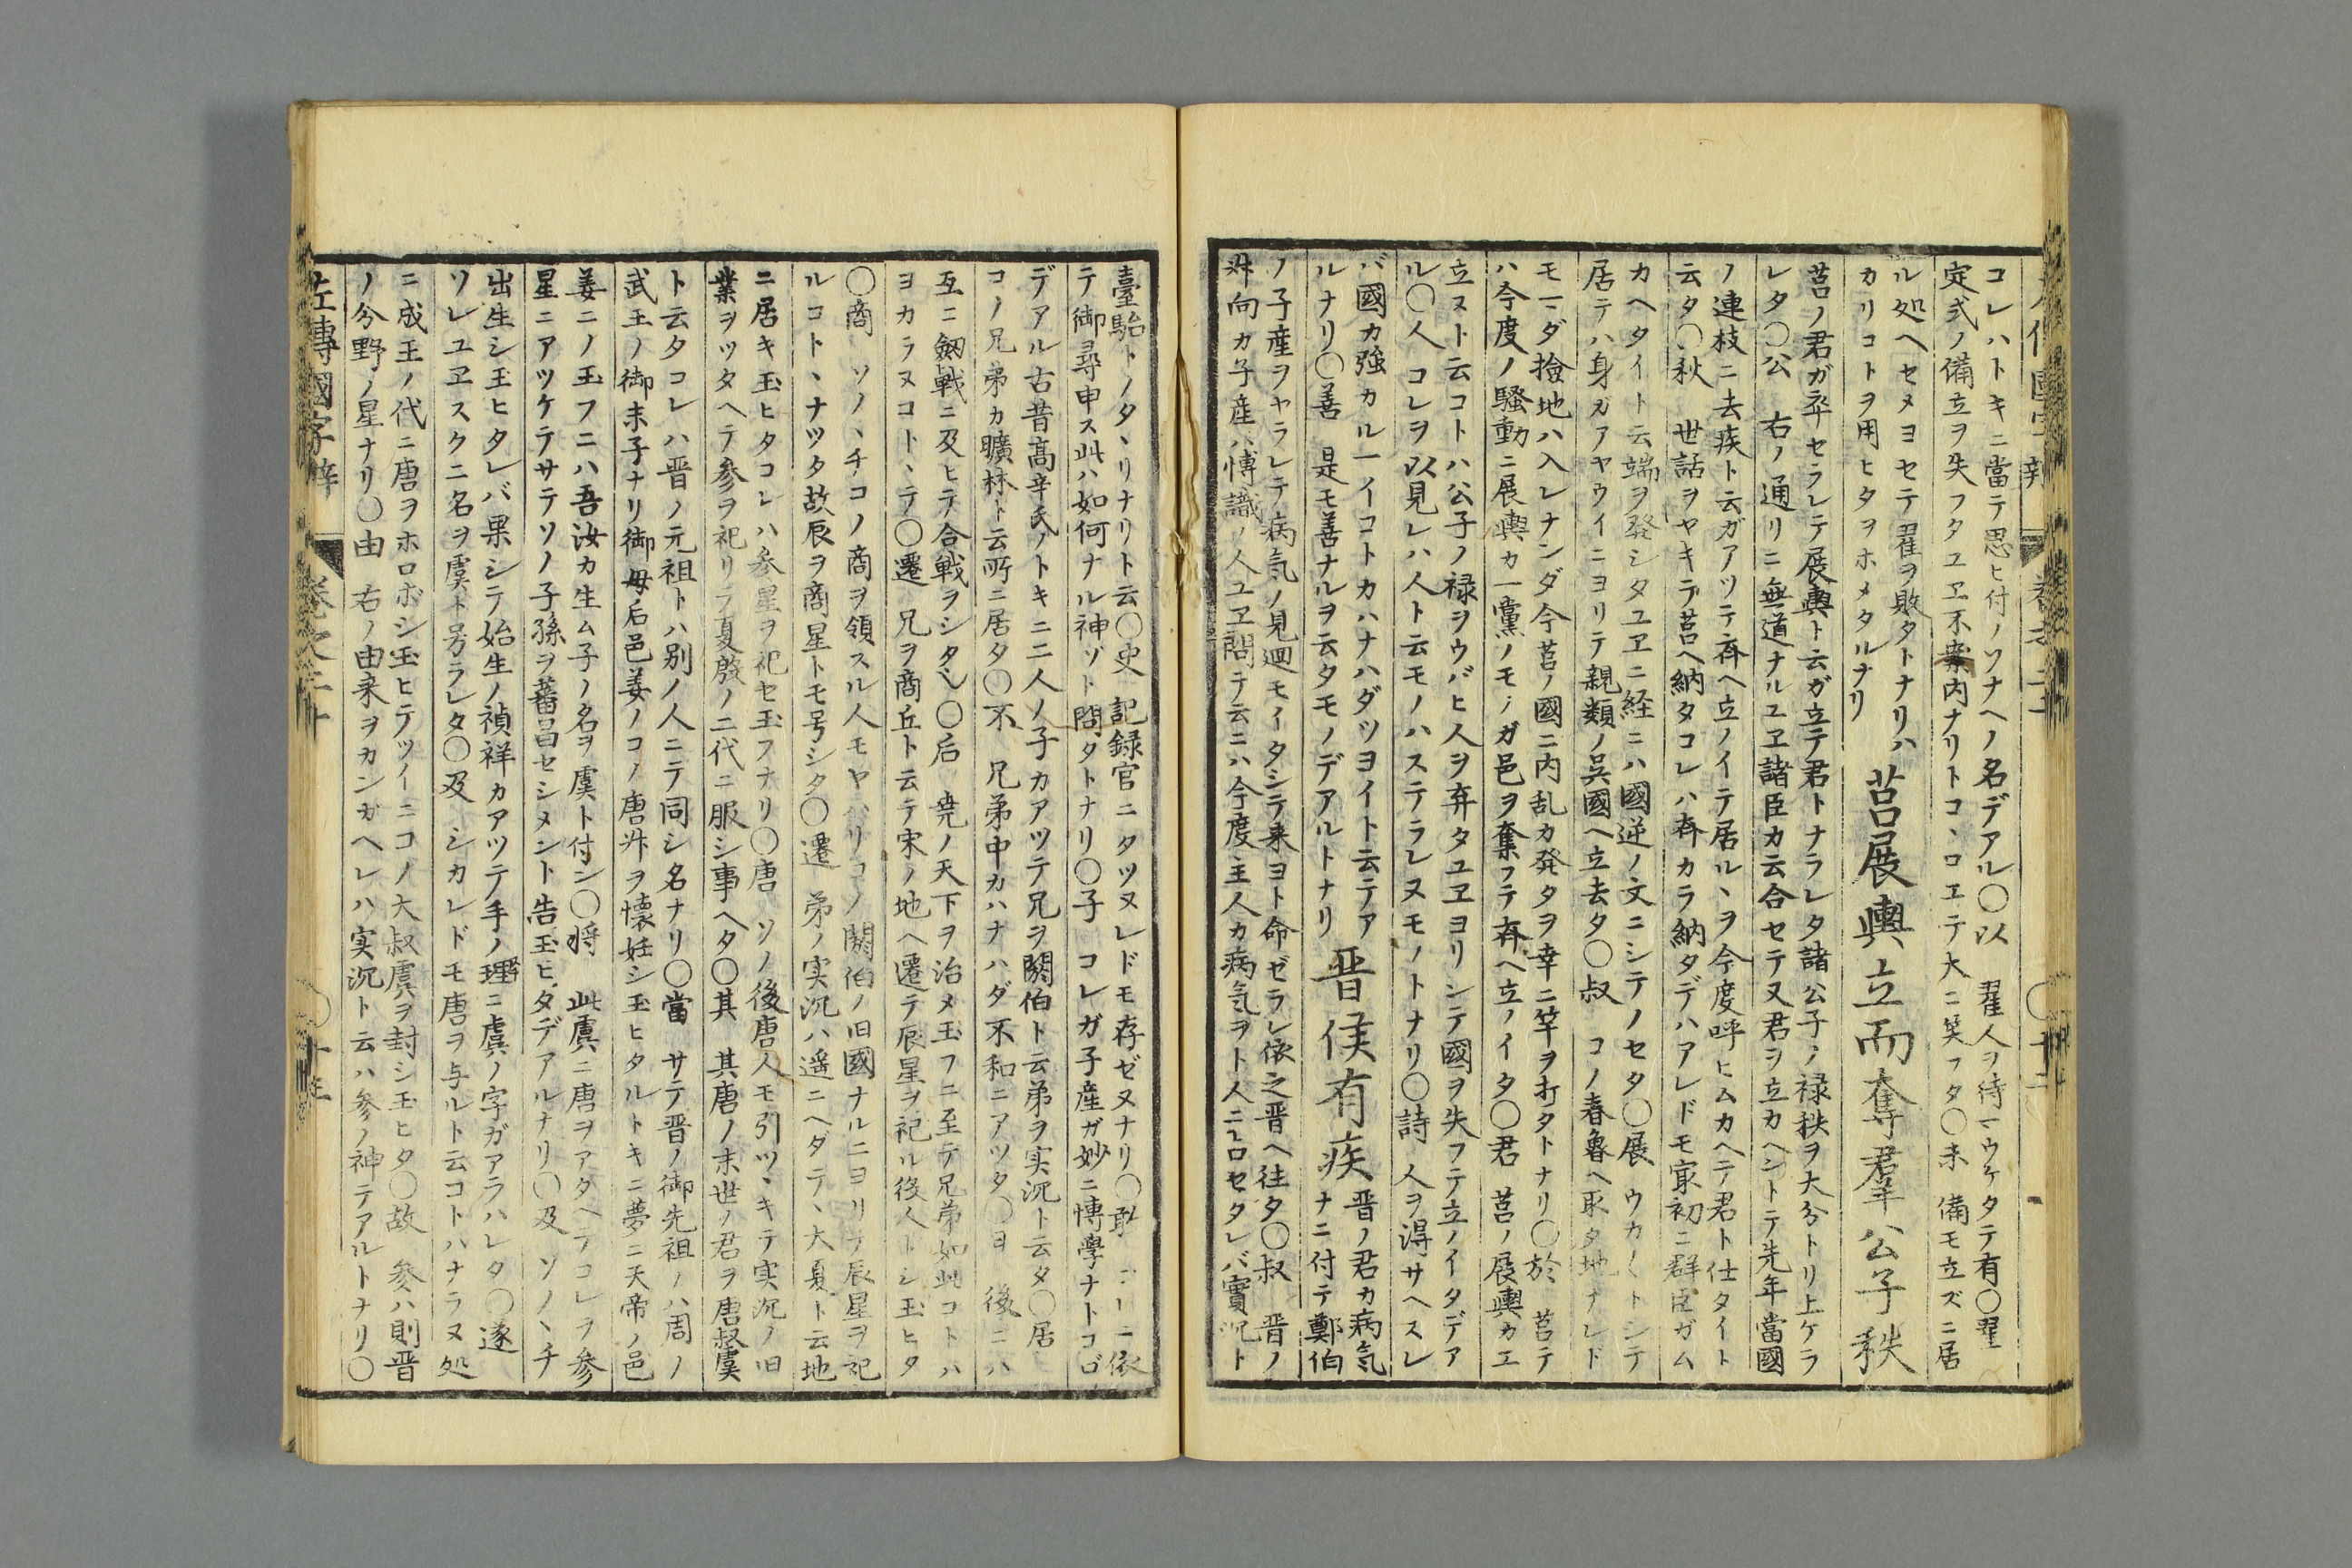 コレハトキニ當テ思ヒ付ノソナヘノ名デアル〇以 翟人ヲ待ウケタテ有〇翟
定式ノ備立ヲ失フタユヱ不案内ナリトコヽロエテ大ニ笑フタ〇未 備モ立ズニ居
ル処ヘセメヨセテ翟ヲ敗タトナリハ
カリコトヲ用ヒタヲホメタルナリ
莒展輿立而奪羣公子秩
莒ノ君ガ卒セラレテ展輿ト云ガ立テ君トナラレタ諸公子ノ禄秩ヲ大分トリ上ケラ
レタ〇公 右ノ通リニ無道ナルユヱ諸臣カ云合セテ又君ヲ立カヘントテ先年當國
ノ連枝ニ去疾ト云ガアツテ斉ヘ立ノイテ居ルヽヲ今度呼ヒムカヘテ君ト仕タイト
云タ〇秋 世話ヲヤキテ莒ヘ納タコレハ斉カラ納タデハアレドモ寂初ニ群臣ガム
カヘタイト云端ヲ發シタユヱニ経ニハ國逆ノ文ニシテノセタ〇展 ウカ〳〵トシテ
居テハ身ガアヤウイニヨリテ親類ノ呉國ヘ立去タ〇叔 コノ春魯ヘ取タ地ナレド
モマダ撿地ハ入レナンダ今莒ノ國ニ内乱カ発タヲ幸ニ竿ヲ打タトナリ〇於 莒テ
ハ今度ノ騒動ニ展輿カ一黨ノモノガ邑ヲ奪フテ斉ヘ立ノイタ〇君 莒ノ展輿カエ
立ヌト云コトハ公子ノ禄ヲウバヒ人ヲ弃タユヱヨリシテ國ヲ失フテ立ノイタデア
ル〇人 コレヲ以見レハ人ト云モノハステラレヌモノトナリ〇詩 人ヲ得サヘスレ
バ國カ強カルイコトカハナハダツヨイト云テア
ルナリ〇善 是モ善ナルヲ云タモノデアルトナリ
晋侯有疾
晋ノ君カ病気
ナニ付テ鄭伯
ノ子産ヲヤラレテ病気ノ見廻モイタシテ来ヨト命ゼラレ依之晋ヘ往タ〇叔 晋ノ
叔向カ子産ハ博識ノ人ユヱ問テ云ニハ今度主人カ病気ヲト人ニ占セタレバ實沉ト
臺駘トノタヽリナリト云〇史 記録官ニタツヌレドモ存ゼヌナリ〇敢 依
テ御尋申ス此ハ如何ナル神ゾト問タトナリ〇子 コレガ子産ガ妙ニ博學ナトコロ
デアル古昔高辛氏ノトキニ二人ノ子カアツテ兄ヲ閼伯ト云弟ヲ実沉ト云タ〇居
コノ兄弟カ曠林ト云所ニ居タ〇不 兄弟中カハナハダ不和ニアツタ〇日 後ニハ
互ニ劔戦ニ及ヒテ合戦ヲシタ〇后 尭ノ天下ヲ治メ玉フニ至テ兄弟如此コトハ
ヨカラヌコトヽテ〇遷 兄ヲ商丘ト云テ宋ノ地ヘ遷テ辰星ヲ祀ル後人トシ玉ヒタ
〇商 ソノヽチコノ商ヲ領スル人モヤハリコノ閼伯ノ旧國ナルニヨリテ辰星ヲ祀
ルコトヽナツタ故辰ヲ商星トモ号シタ〇遷 弟ノ実沉ハ遥ニヘダテヽ大夏ト云地
ニ居キ玉ヒタコレハ参星ヲ祀セ玉フナリ〇唐 ソノ後唐人モ引ツヽキテ実沉ノ旧
業ヲツタヘテ参ヲ祀リテ夏殷ノ二代ニ服シ事ヘタ〇其 其唐ノ末世ノ君ヲ唐叔虞
ト云タコレハ晋ノ元祖トハ別ノ人ニテ同シ名ナリ〇當 サテ晋ノ御先祖ノハ周ノ
武王ノ御末子ナリ御母后邑姜ノコノ唐叔ヲ懐妊シ玉ヒタルトキニ夢ニ天帝ノ邑
姜ニノ玉フニハ吾汝カ生ム子ノ名ヲ虞ト付ン〇将 此虞ニ唐ヲアタヘテコレヲ参
星ニアツケテサテソノ子孫ヲ蕃昌セシメント告玉ヒタデアルナリ〇及 ソノヽチ
出生シ玉ヒタレバ果シテ始生ノ禎祥カアツテ手ノ理ニ虞ノ字ガアラハレタ〇遂
ソレユヱスクニ名ヲ虞ト号ラレタ〇及 シカレドモ唐ヲ与ルト云コトハナラヌ処
ニ成王ノ代ニ唐ヲホロボシ玉ヒテツイニコノ大叔虞ヲ封シ玉ヒタ〇故 参ハ則晋
ノ分野ノ星ナリ〇由 右ノ由来ヲカンガヘレハ実沉ト云ハ参ノ神テアルトナリ〇
左傳國字辯 巻之二十 〇十三